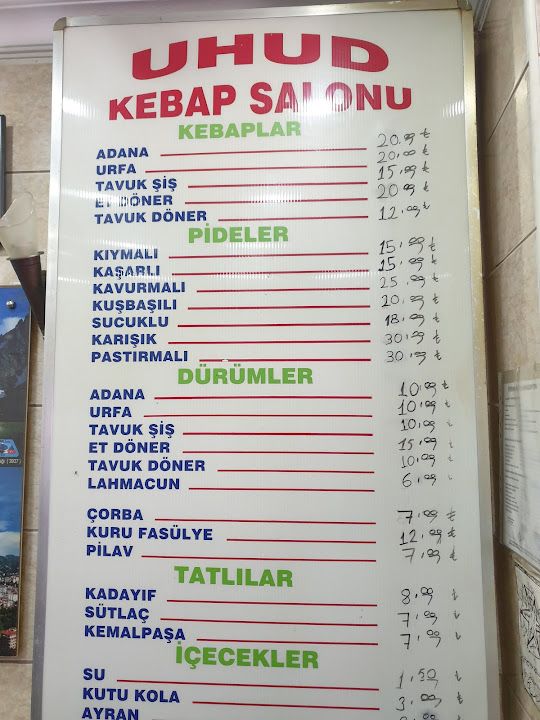 UHUD
KEBAP SALONU
KEBAPLAR
ADANA 20.00 ₺
URFA 20.00 ₺
TAVUK ŞİŞ 15.00 ₺
ET DÖNER 20.00 ₺
TAVUK DÖNER 12.00 ₺
PİDELER
KIYMALI 15.00 ₺
KAŞARLI 15.00 ₺
KAVURMALI 25.00 ₺
KUŞBAŞILI 20.00 ₺
SUCUKLU 18.00 ₺
KARIŞIK 30.00 ₺
PASTIRMALI 30.00 ₺
DÜRÜMLER
ADANA 10.00 ₺
URFA 10.00 ₺
TAVUK ŞİŞ 10.00 ₺
ET DÖNER 15.00 ₺
TAVUK DÖNER 10.00 ₺
LAHMACUN 6.00 ₺
ÇORBA 7.00 ₺
KURU FASÜLYE 12.00 ₺
PİLAV 7.00 ₺
TATLILAR
KADAYIF 8.00 ₺
SÜTLAÇ 7.00 ₺
KEMALPAŞA 7.00 ₺
İÇECEKLER
SU 1.50 ₺
KUTU KOLA 3.00 ₺
AYRAN